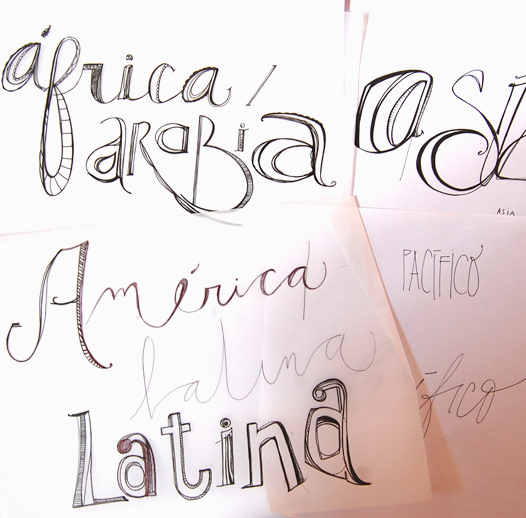 áfrica/
arabia
ASIA
PACÍFICO
América
latina
Latina